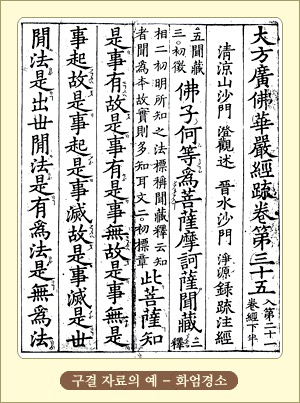 大方廣佛華嚴經疏卷第三十五 入第二十一
卷經下半
清涼山沙門 澄觀述 晉水沙門 淨源錄疏注經
五聞藏
三○初徵
佛子何等爲菩薩摩訶薩聞藏 二
釋
相二初明所知之法標稱聞藏釋云知
者聞爲本故實則多知耳文二○初標章
此菩薩知
是事有故是事有是事無故是事無是
事起故是事起是事滅故是事滅是丗
間法是出丗間法是有爲法是無爲法
구결 자료의 예 – 화엄경소